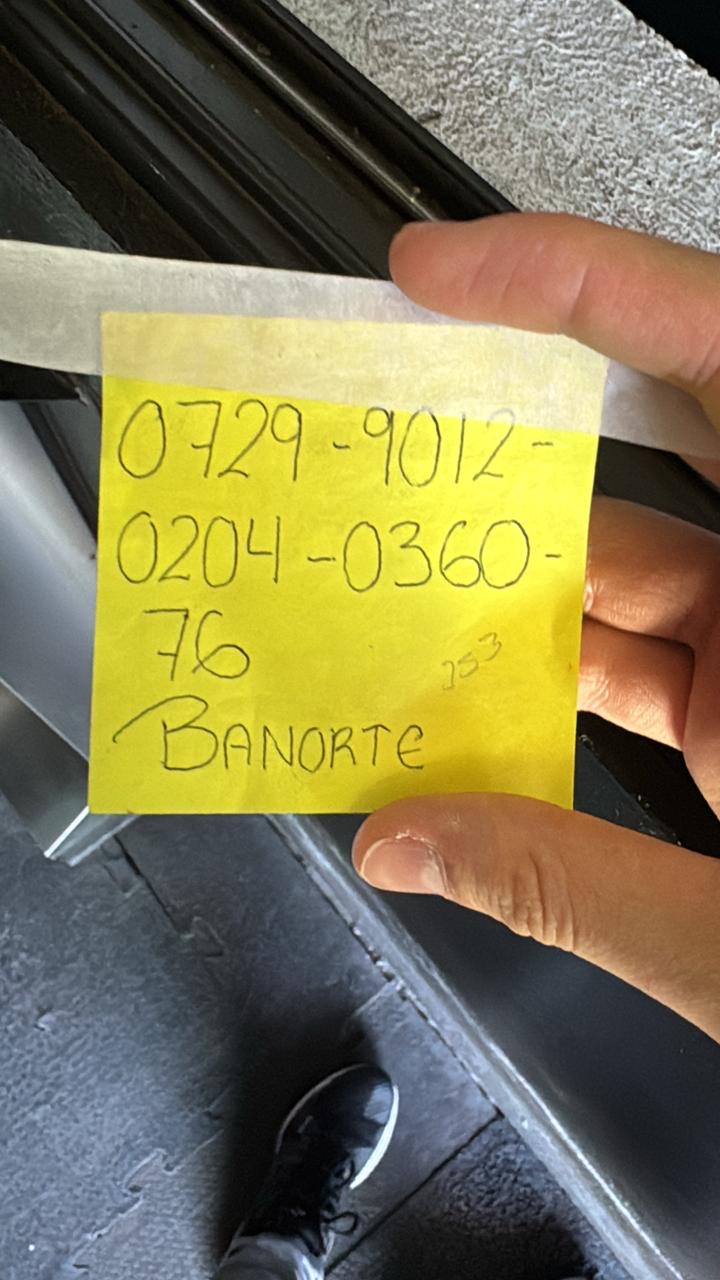 0729-9012-
0204-0360-
76
353
BANORTE